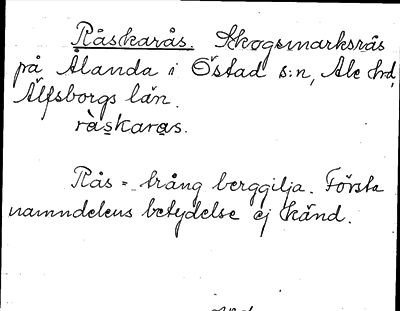 Råskarås. Skogsmarksrås
på Ålanda i Östad s:n, Ale hd,
Älfsborgs län.
ràskaras.
Rås = trång berggilja. Första
namndelens betydelse ej känd.